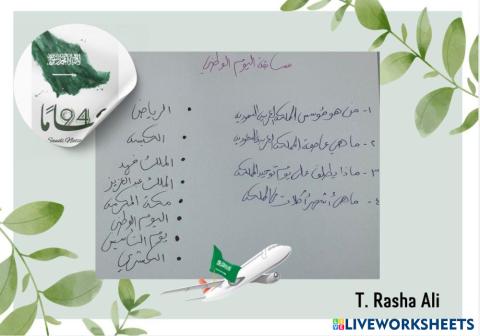 مسابقة اليوم الوطني
١- من هو مؤسس المملكة العربية السعودية
٢- ما هي عاصمة المملكة العربية السعودية
٣- ماذا يطلق على يوم توحيد المملكة
٤- ما هي أشهر أكلات المملكة
• الرياض
• الكبسة
• الملك فهد
• الملك عبدالعزيز
• مكة المكرمة
• اليوم الوطني
• يوم التأسيس
• الكشري
94 عامًا
T. Rasha Ali
LIVEWORKSHEETS